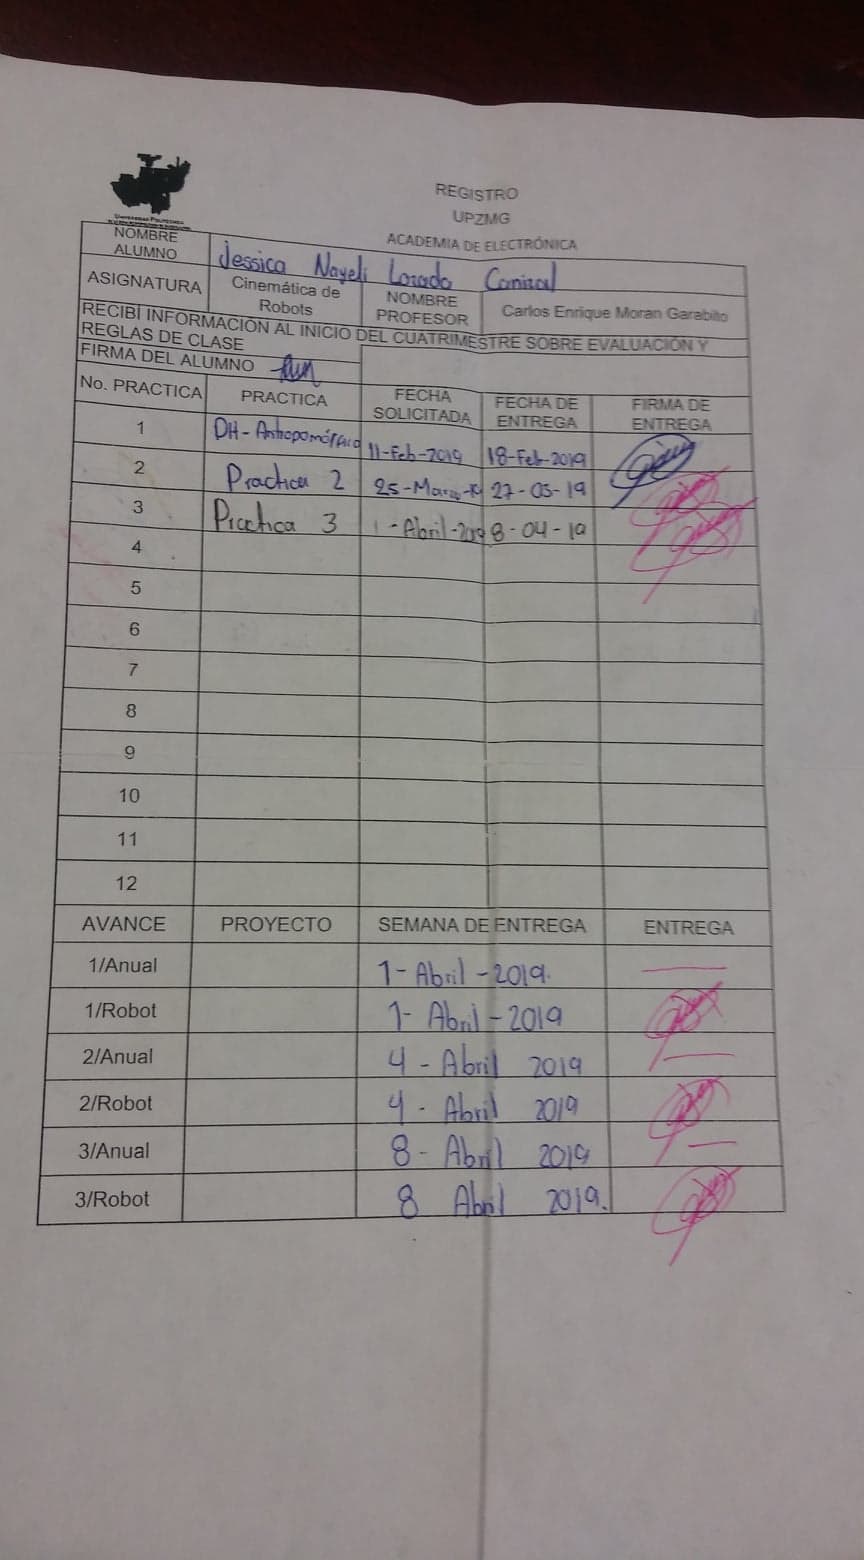 REGISTRO
UPZMG
ACADEMIA DE ELECTRÓNICA
UNIVERSIDAD POLITÉCNICA
NOMBRE ALUMNO Jessica Nayeli
ASIGNATURA Cinemática de Robots NOMBRE PROFESOR Carlos Enrique Moran Garabito
RECIBÍ INFORMACIÓN AL INICIO DEL CUATRIMESTRE SOBRE EVALUACIÓN Y
REGLAS DE CLASE
FIRMA DEL ALUMNO
No. PRACTICA PRACTICA FECHA SOLICITADA FECHA DE ENTREGA FIRMA DE ENTREGA
1 DH-Antropomórfico 11-Feb-2019 18-Feb-2019
2 Practica 2 27-03-19
3 Practica 3 8-04-19
4
5
6
7
8
9
10
11
12
AVANCE PROYECTO SEMANA DE ENTREGA ENTREGA
1/Anual 1-Abril-2019.
1/Robot 1-Abril-2019
2/Anual 4-Abril 2019
2/Robot 4-Abril 2019
3/Anual 8-Abril 2019
3/Robot 8 Abril 2019.